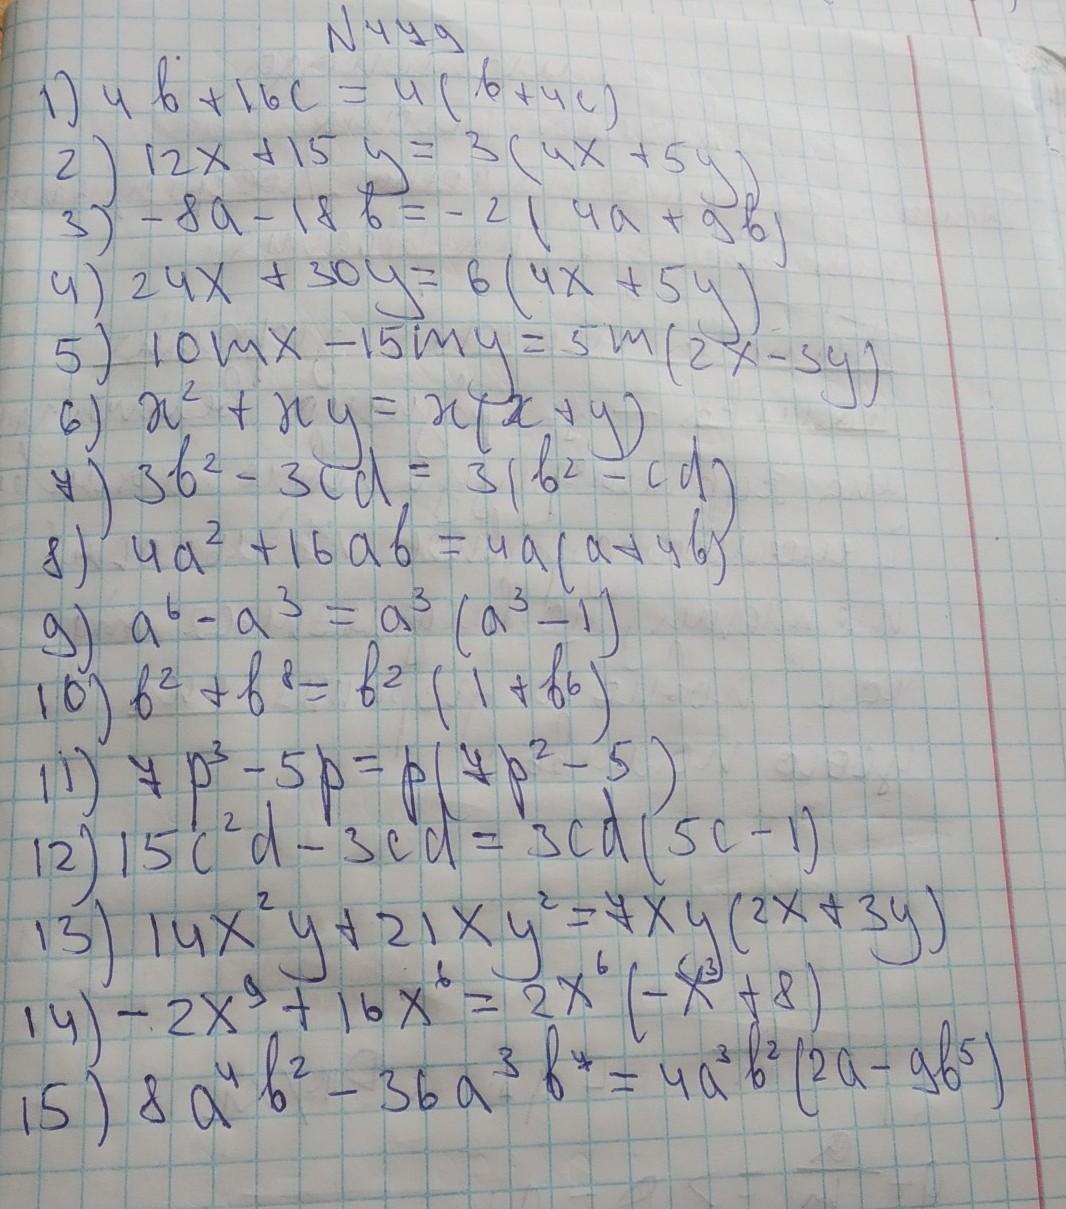 N449
1) 4b + 16c = 4(b + 4c)
2) 12x + 15y = 3(4x + 5y)
3) -8a - 18b = -2(4a + 9b)
4) 24x + 30y = 6(4x + 5y)
5) 10mx - 15my = 5m(2x - 3y)
6) x² + xy = x(x + y)
7) 3b² - 3cd = 3(b² - cd)
8) 4a² + 16ab = 4a(a + 4b)
9) a⁶ - a³ = a³(a³ - 1)
10) b² + b⁸ = b²(1 + b⁶)
11) 7p³ - 5p = p(7p² - 5)
12) 15c²d - 3cd = 3cd(5c - 1)
13) 14x²y + 21xy² = 7xy(2x + 3y)
14) -2x⁹ + 16x⁶ = 2x⁶(-x³ + 8)
15) 8a⁴b² - 36a³b⁷ = 4a³b²(2a - 9b⁵)